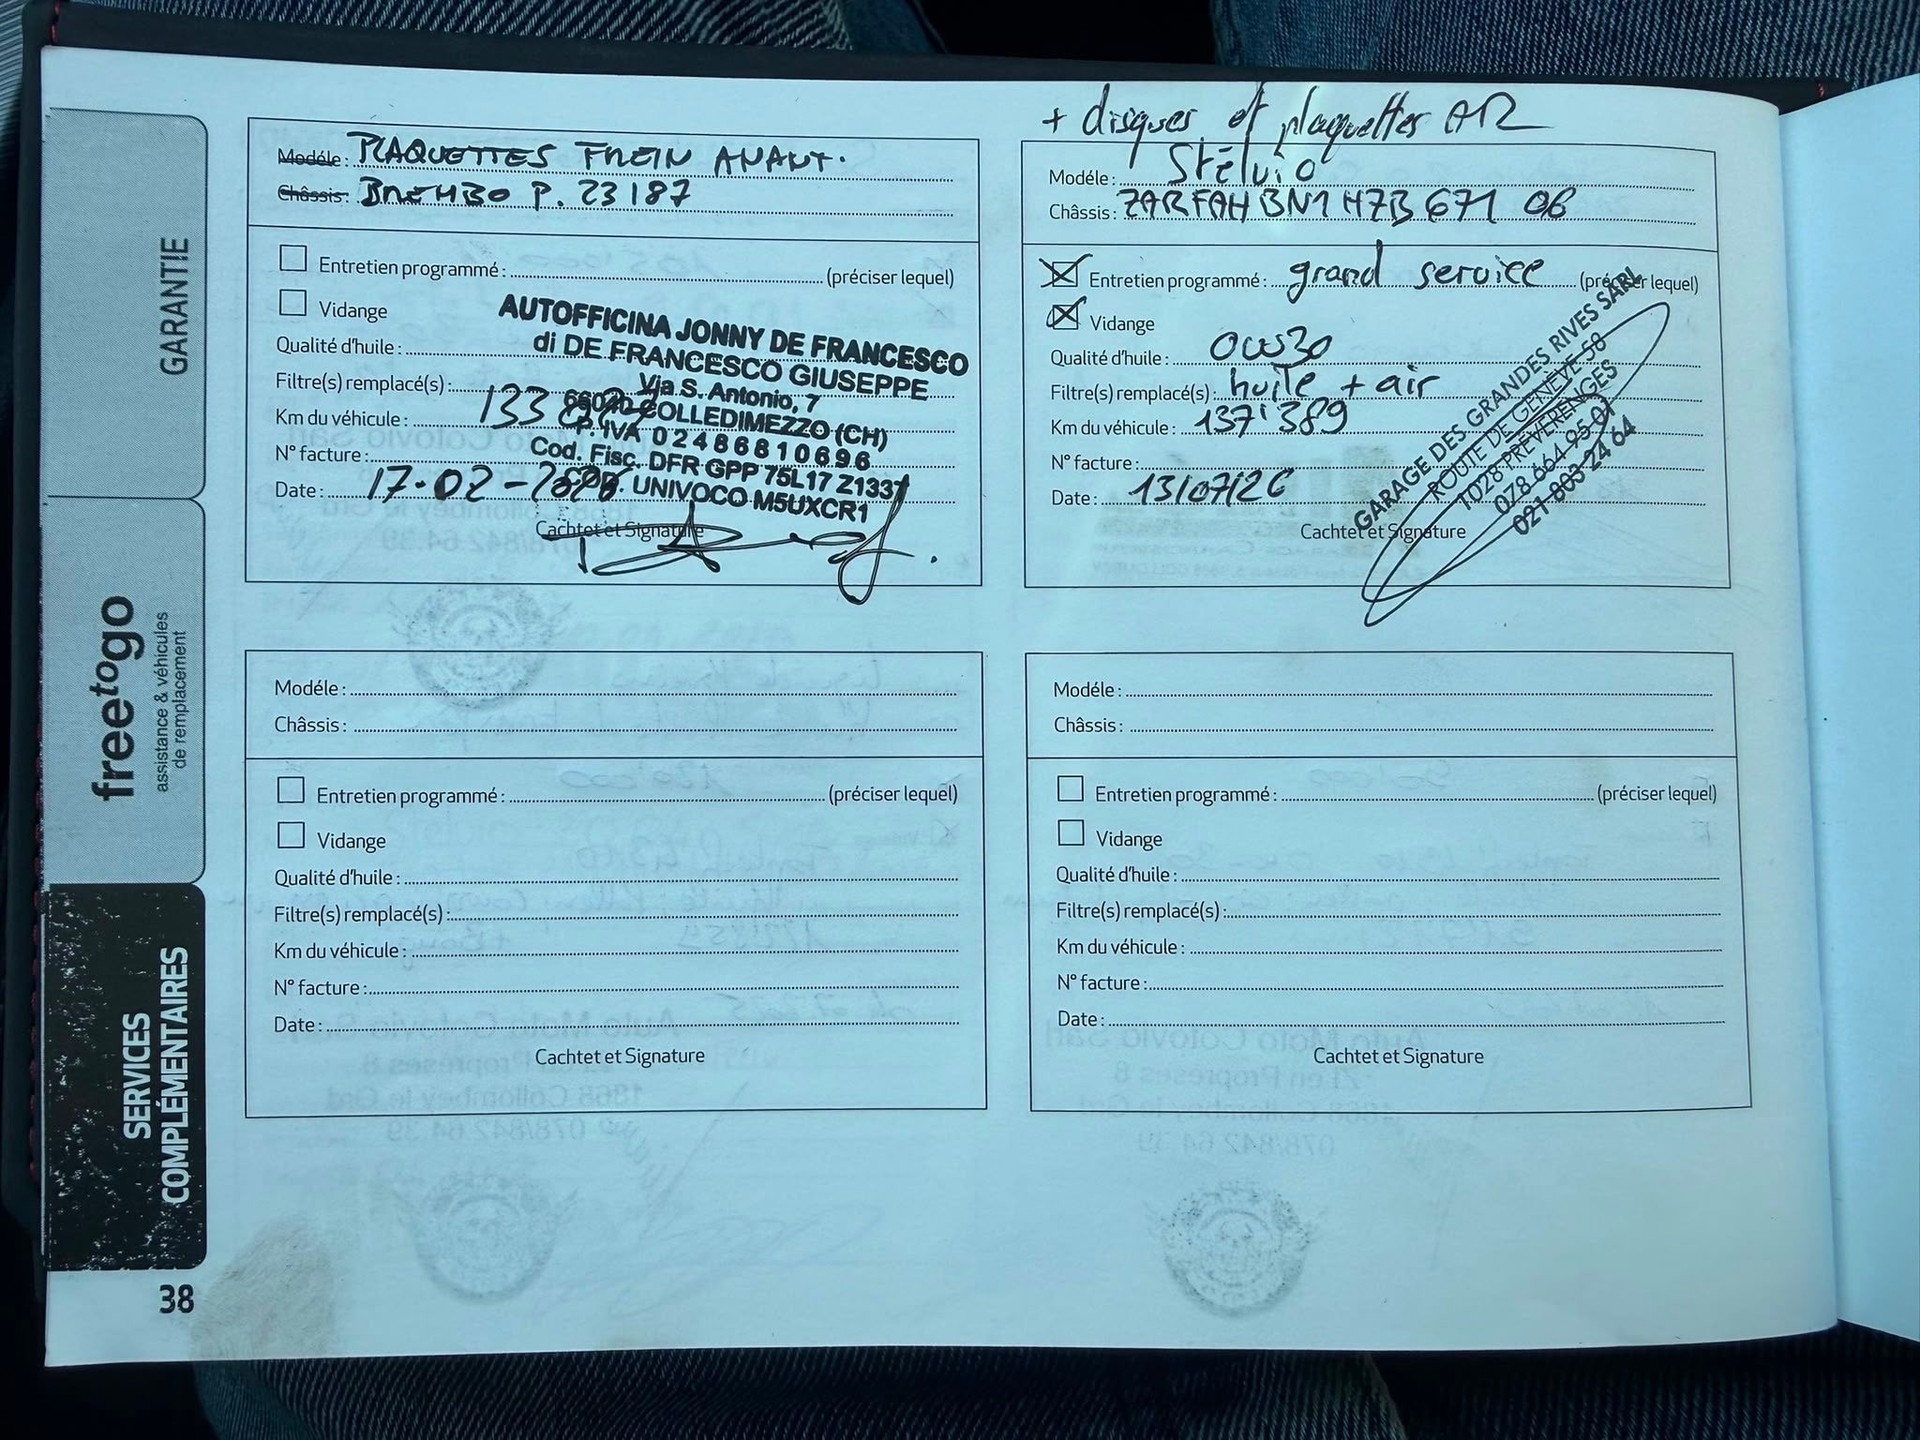 GARANTIE
freetogo
assistance & véhicules
de remplacement
SERVICES
COMPLÉMENTAIRES
38
Modéle : PLAQUETTES FREIN AVANT.
Châssis : BREMBO P. 23187
Entretien programmé : (préciser lequel)
Vidange
Qualité d'huile :
Filtre(s) remplacé(s) :
Km du véhicule : 133
N° facture :
Date : 17-02-
Cachtet et Signature
AUTOFFICINA JONNY DE FRANCESCO
di DE FRANCESCO GIUSEPPE
Via S. Antonio, 7
66040 COLLEDIMEZZO (CH)
P. IVA 02486810696
Cod. Fisc. DFR GPP 75L17 Z133
UNIVOCO M5UXCR1
+ disques et plaquettes AR
Modéle : Stélvio
Châssis : ZARFAHBN1H7B671 06
Entretien programmé : grand service (préciser lequel)
Vidange
Qualité d'huile : 0W30
Filtre(s) remplacé(s) : huile + air
Km du véhicule : 137'389
N° facture :
Date : 13/07/26
Cachtet et Signature
GARAGE DES GRANDES RIVES SARL
ROUTE DE GENÈVE 58
1028 PRÉVERENGES
078 664 95 01
021 803 24 64
Modéle :
Châssis :
Entretien programmé : (préciser lequel)
Vidange
Qualité d'huile :
Filtre(s) remplacé(s) :
Km du véhicule :
N° facture :
Date :
Cachtet et Signature
Modéle :
Châssis :
Entretien programmé : (préciser lequel)
Vidange
Qualité d'huile :
Filtre(s) remplacé(s) :
Km du véhicule :
N° facture :
Date :
Cachtet et Signature